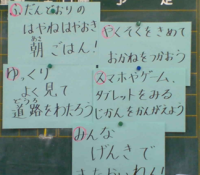 予定
ふだんどおりの
はやねはやおき
あさ
朝ごはん!
やくそくをきめて
おかねをつかおう
ゆっくり
よく見て
どうろ
道路をわたろう
スマホやゲーム、
タブレットをみる
じかんをかんがえよう
みんな
げんきで